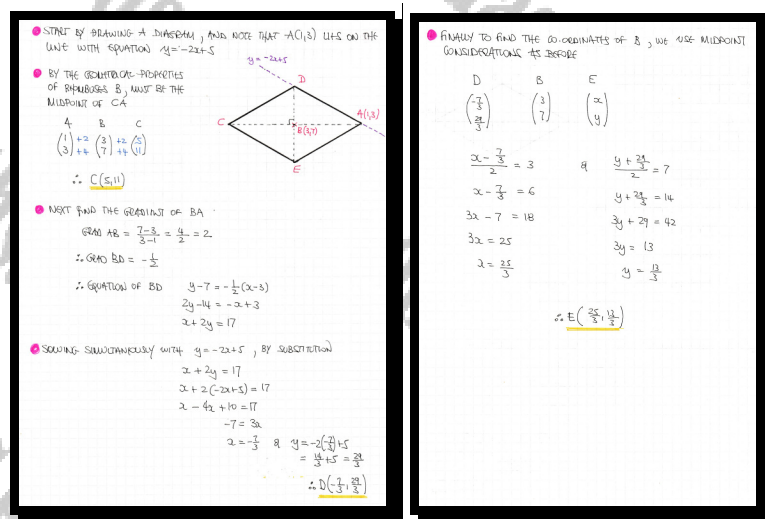 START BY DRAWING A DIAGRAM, AND NOTE THAT A(1,3) LIES ON THE
LINE WITH EQUATION y=-2x+5
y=-2x+5
BY THE GEOMETRICAL PROPERTIES
OF RHOMBUSES B, MUST BE THE
MIDPOINT OF CA
D
C
A(1,3)
B(3,7)
E
A B C
(1 3) +2 +4 (3 7) +2 +4 (5 11)
∴ C(5,11)
NEXT FIND THE GRADIENT OF BA
GRAD AB = 7-3/3-1 = 4/2 = 2
∴ GRAD BD = -1/2
∴ EQUATION OF BD y-7 = -1/2(x-3)
2y-14 = -x+3
x+2y = 17
SOLVING SIMULTANEOUSLY WITH y=-2x+5, BY SUBSTITUTION
x+2y = 17
x+2(-2x+5) = 17
x-4x+10 = 17
-7 = 3x
x = -7/3 & y = -2(-7/3)+5
= 14/3+5 = 29/3
∴ D(-7/3, 29/3)
FINALLY TO FIND THE CO-ORDINATES OF B, WE USE MIDPOINT
CONSIDERATIONS AS BEFORE
D B E
(-7/3 29/3) (3 7) (x y)
x-7/3 /2 = 3 & y+29/3 /2 = 7
x-7/3 = 6 y+29/3 = 14
3x-7 = 18 3y+29 = 42
3x = 25 3y = 13
x = 25/3 y = 13/3
∴ E(25/3, 13/3)